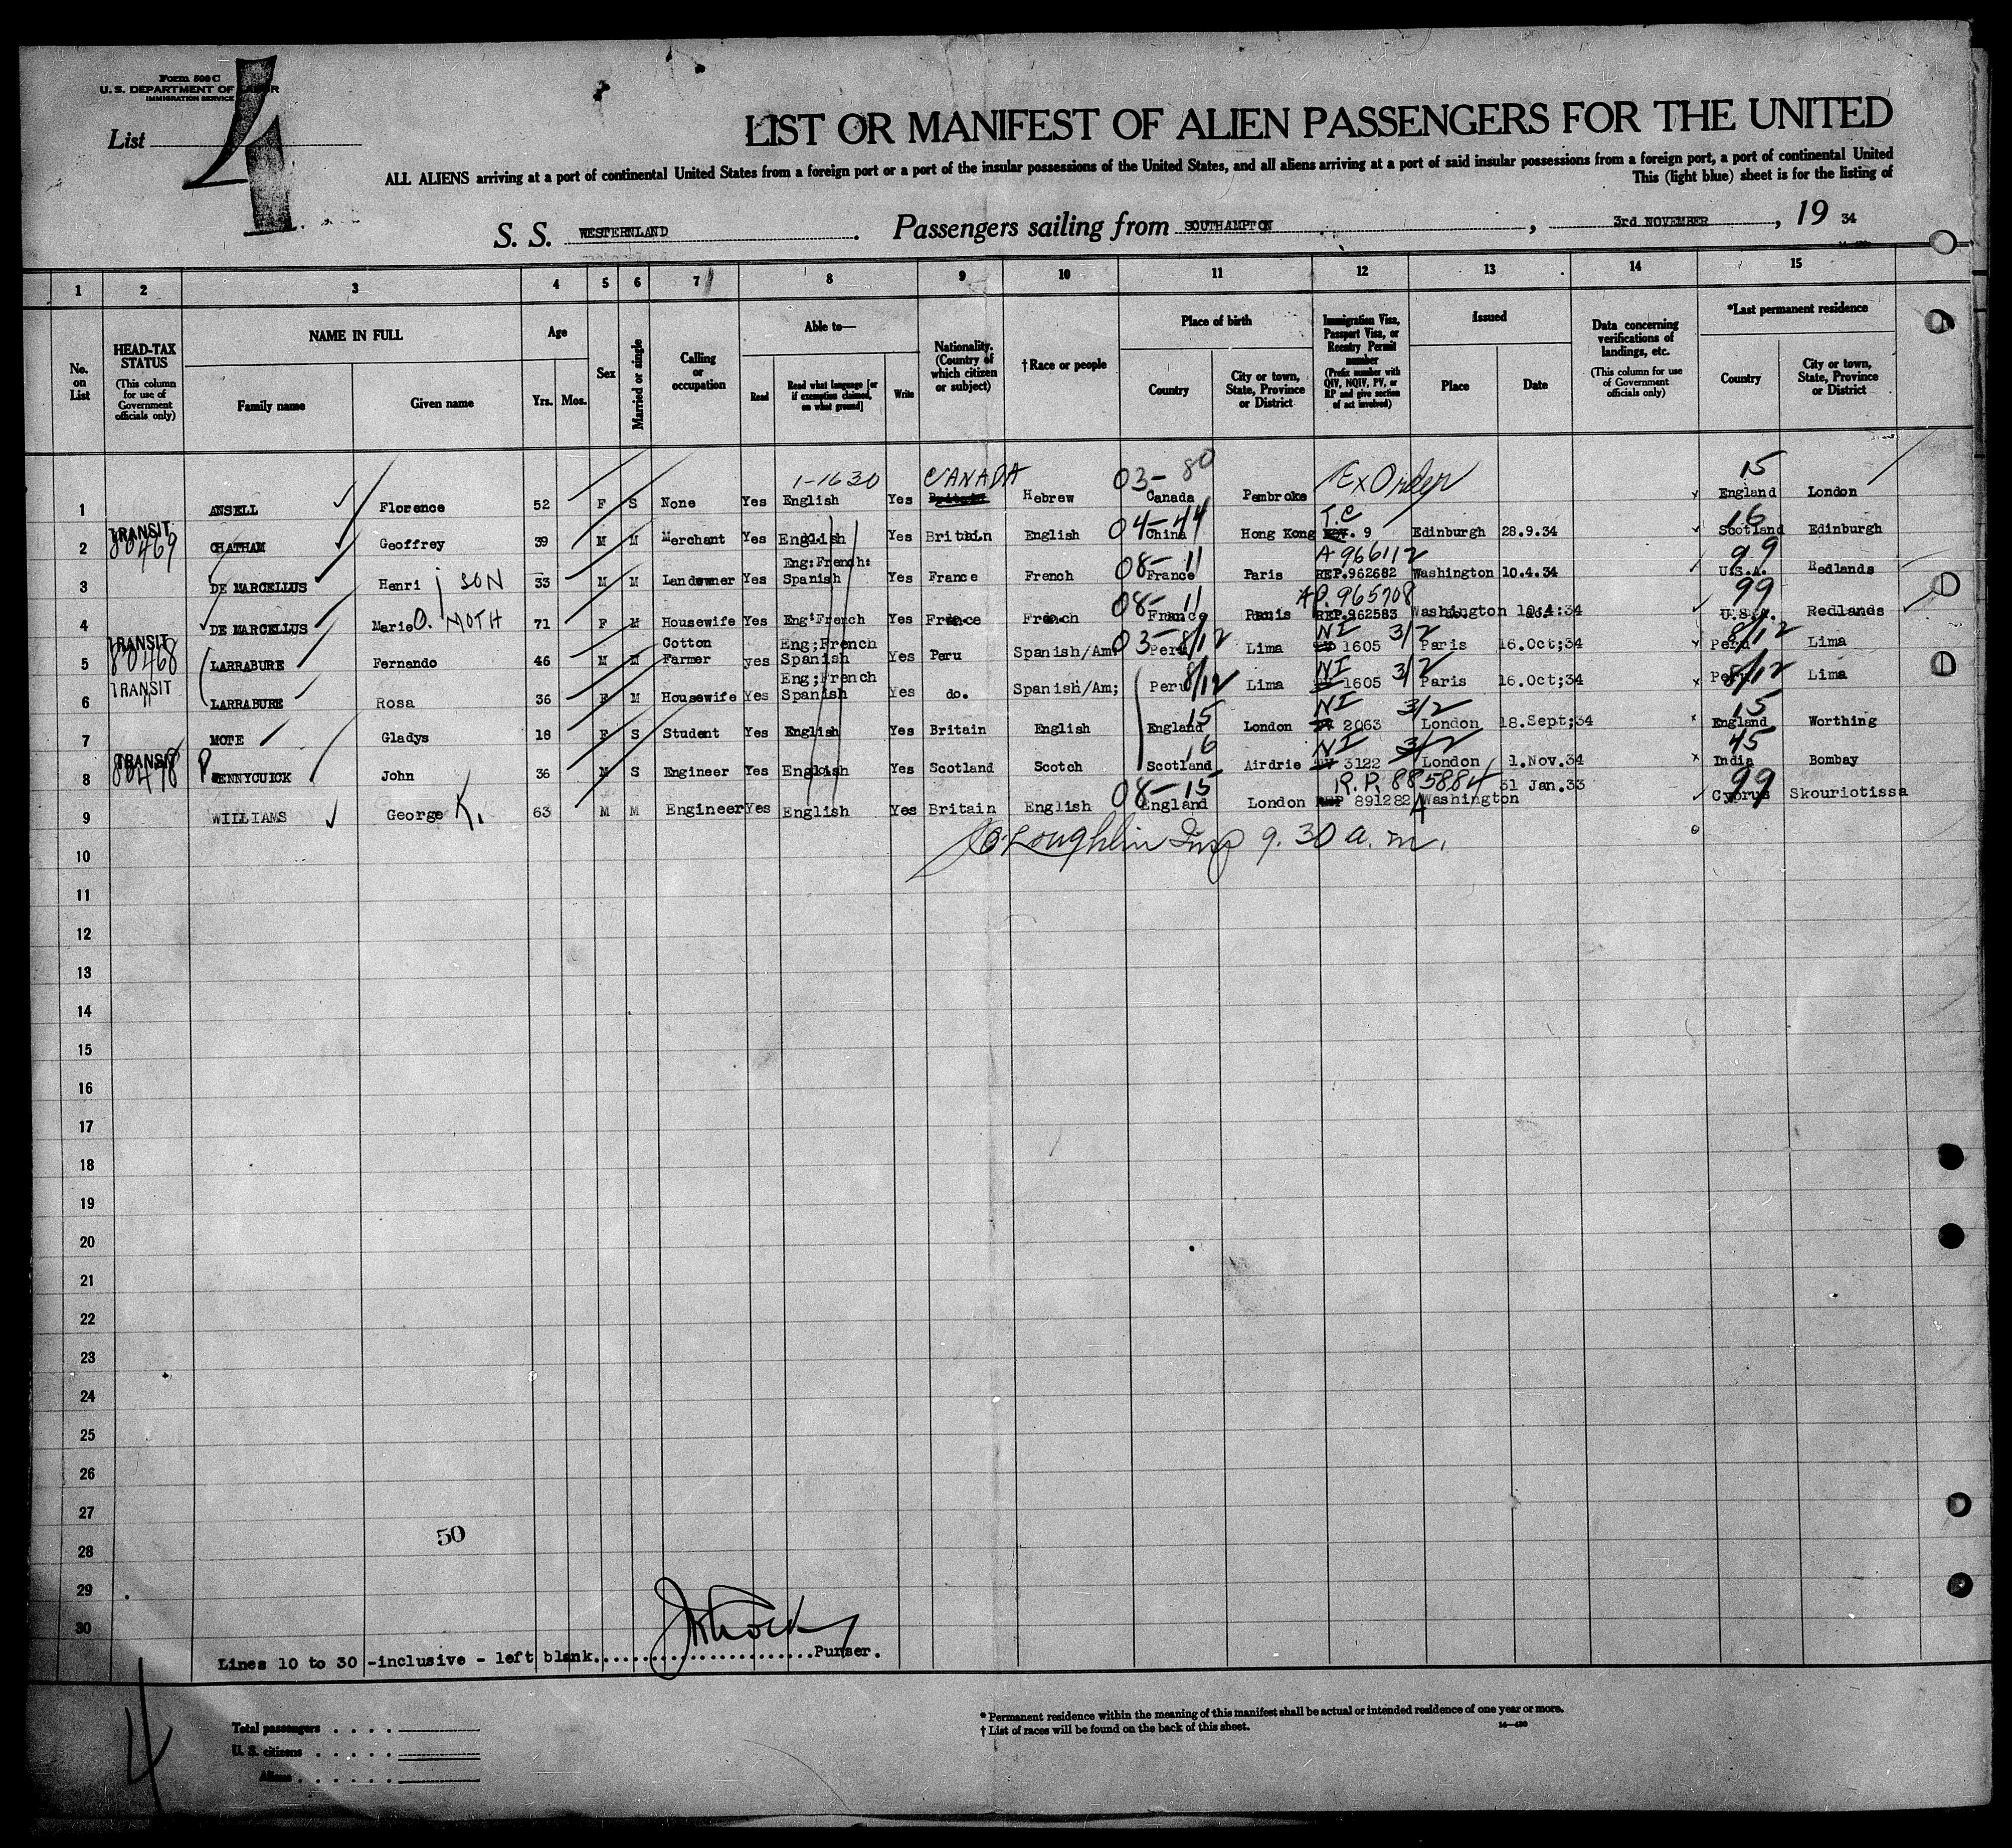 Form 500 C
U. S. DEPARTMENT OF LABOR
IMMIGRATION SERVICE
List 4
LIST OR MANIFEST OF ALIEN PASSENGERS FOR THE UNITED
ALL ALIENS arriving at a port of continental United States from a foreign port or a port of the insular possessions of the United States, and all aliens arriving at a port of said insular possessions from a foreign port, a port of continental United
This (light blue) sheet is for the listing of
S. S. WESTERNLAND. Passengers sailing from SOUTHAMPTON, 3rd NOVEMBER, 19 34
1 2 3 4 5 6 7 8 9 10 11 12 13 14 15
No. on List
HEAD-TAX STATUS (This column for use of Government officials only)
NAME IN FULL
Family name
Given name
Age
Yrs. Mos.
Sex
Married or single
Calling or occupation
Able to—
Read
Read what language [or if exemption claimed, on what ground]
Write
Nationality. (Country of which citizen or subject)
†Race or people
Place of birth
Country
City or town, State, Province or District
Immigration Visa, Passport Visa, or Reentry Permit number (Prefix number with QIV, NQIV, PV, or RP and give section of act involved)
Issued
Place
Date
Data concerning verifications of landings, etc. (This column for use of Government officials only)
*Last permanent residence
Country
City or town, State, Province or District
1-1630 CANADA 03-80 Ex Order 15
1 ANSELL Florence 52 F S None Yes English Yes Britain Hebrew Canada Pembroke England London
TRANSIT 80469 04-44 T.C 16
2 CHATHAM Geoffrey 39 M M Merchant Yes English Yes Britain English China Hong Kong 9 Edinburgh 28.9.34 Scotland Edinburgh
Eng:French: 08-11 A 966112 99
3 DE MARCELLUS Henri j SON 33 M M Landowner Yes Spanish Yes France French France Paris REP.962682 Washington 10.4.34 U.S.A. Redlands
08-11 A P. 965708 99
4 DE MARCELLUS Marie O. MOTH 71 F M Housewife Yes Eng:French Yes France French France Paris REP.962583 Washington 10.4:34 U.S.A. Redlands
TRANSIT 80468 Cotton Eng;French 03-8/12 NI 3/2 8/12
5 LARRABURE Fernando 46 M M Farmer yes Spanish Yes Peru Spanish/Am: Peru Lima 1605 Paris 16.Oct;34 Peru Lima
TRANSIT " Eng;French 8/12 NI 3/2 8/12
6 LARRABURE Rosa 36 F M Housewife Yes Spanish Yes do. Spanish/Am; Peru Lima 1605 Paris 16.Oct;34 Peru Lima
15 NI 3/2 15
7 MOTE Gladys 18 F S Student Yes English Yes Britain English England London 2063 London 18.Sept;34 England Worthing
TRANSIT 80478 16 NI 3/2 45
8 PENNYCUICK John 36 M S Engineer Yes English Yes Scotland Scotch Scotland Airdrie 3122 London 1.Nov.34 India Bombay
08-15 R.P. 885884 31 Jan.33 99
9 WILLIAMS George K. 63 M M Engineer Yes English Yes Britain English England London REP 891282 Washington Cyprus Skouriotissa
O'Loughlin Insp 9.30 a.m.
10
11
12
13
14
15
16
17
18
19
20
21
22
23
24
25
26
27
50
28
29
30
Lines 10 to 30 -inclusive - left blank.........................Purser.
4
Total passengers . . . .
U. S. citizens . . . . .
Aliens . . . . . .
* Permanent residence within the meaning of this manifest shall be actual or intended residence of one year or more.
† List of races will be found on the back of this sheet. 14—430